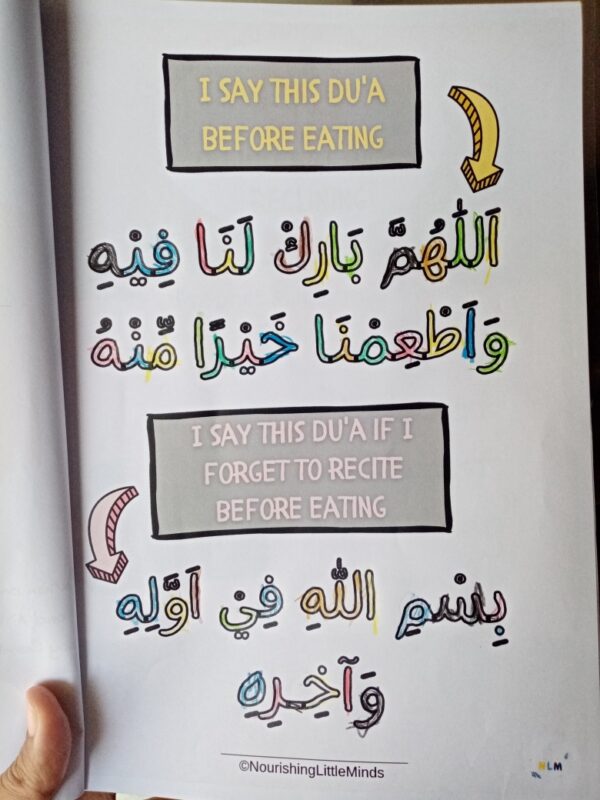 I SAY THIS DU'A
BEFORE EATING
اَللّٰهُمَّ بَارِكْ لَنَا فِيْهِ
وَاَطْعِمْنَا خَيْرًا مِّنْهُ
I SAY THIS DU'A IF I
FORGET TO RECITE
BEFORE EATING
بِسْمِ اللّٰهِ فِيْ اَوَّلِهِ
وَآخِرِهِ
©NourishingLittleMinds
NLM